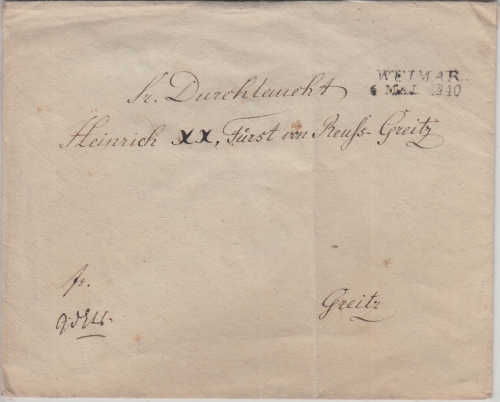 WEIMAR.
6 MAI 1840
Sr. Durchlaucht
Heinrich XX, Fürst von Reuſs-Greitz
fr.
Greitz